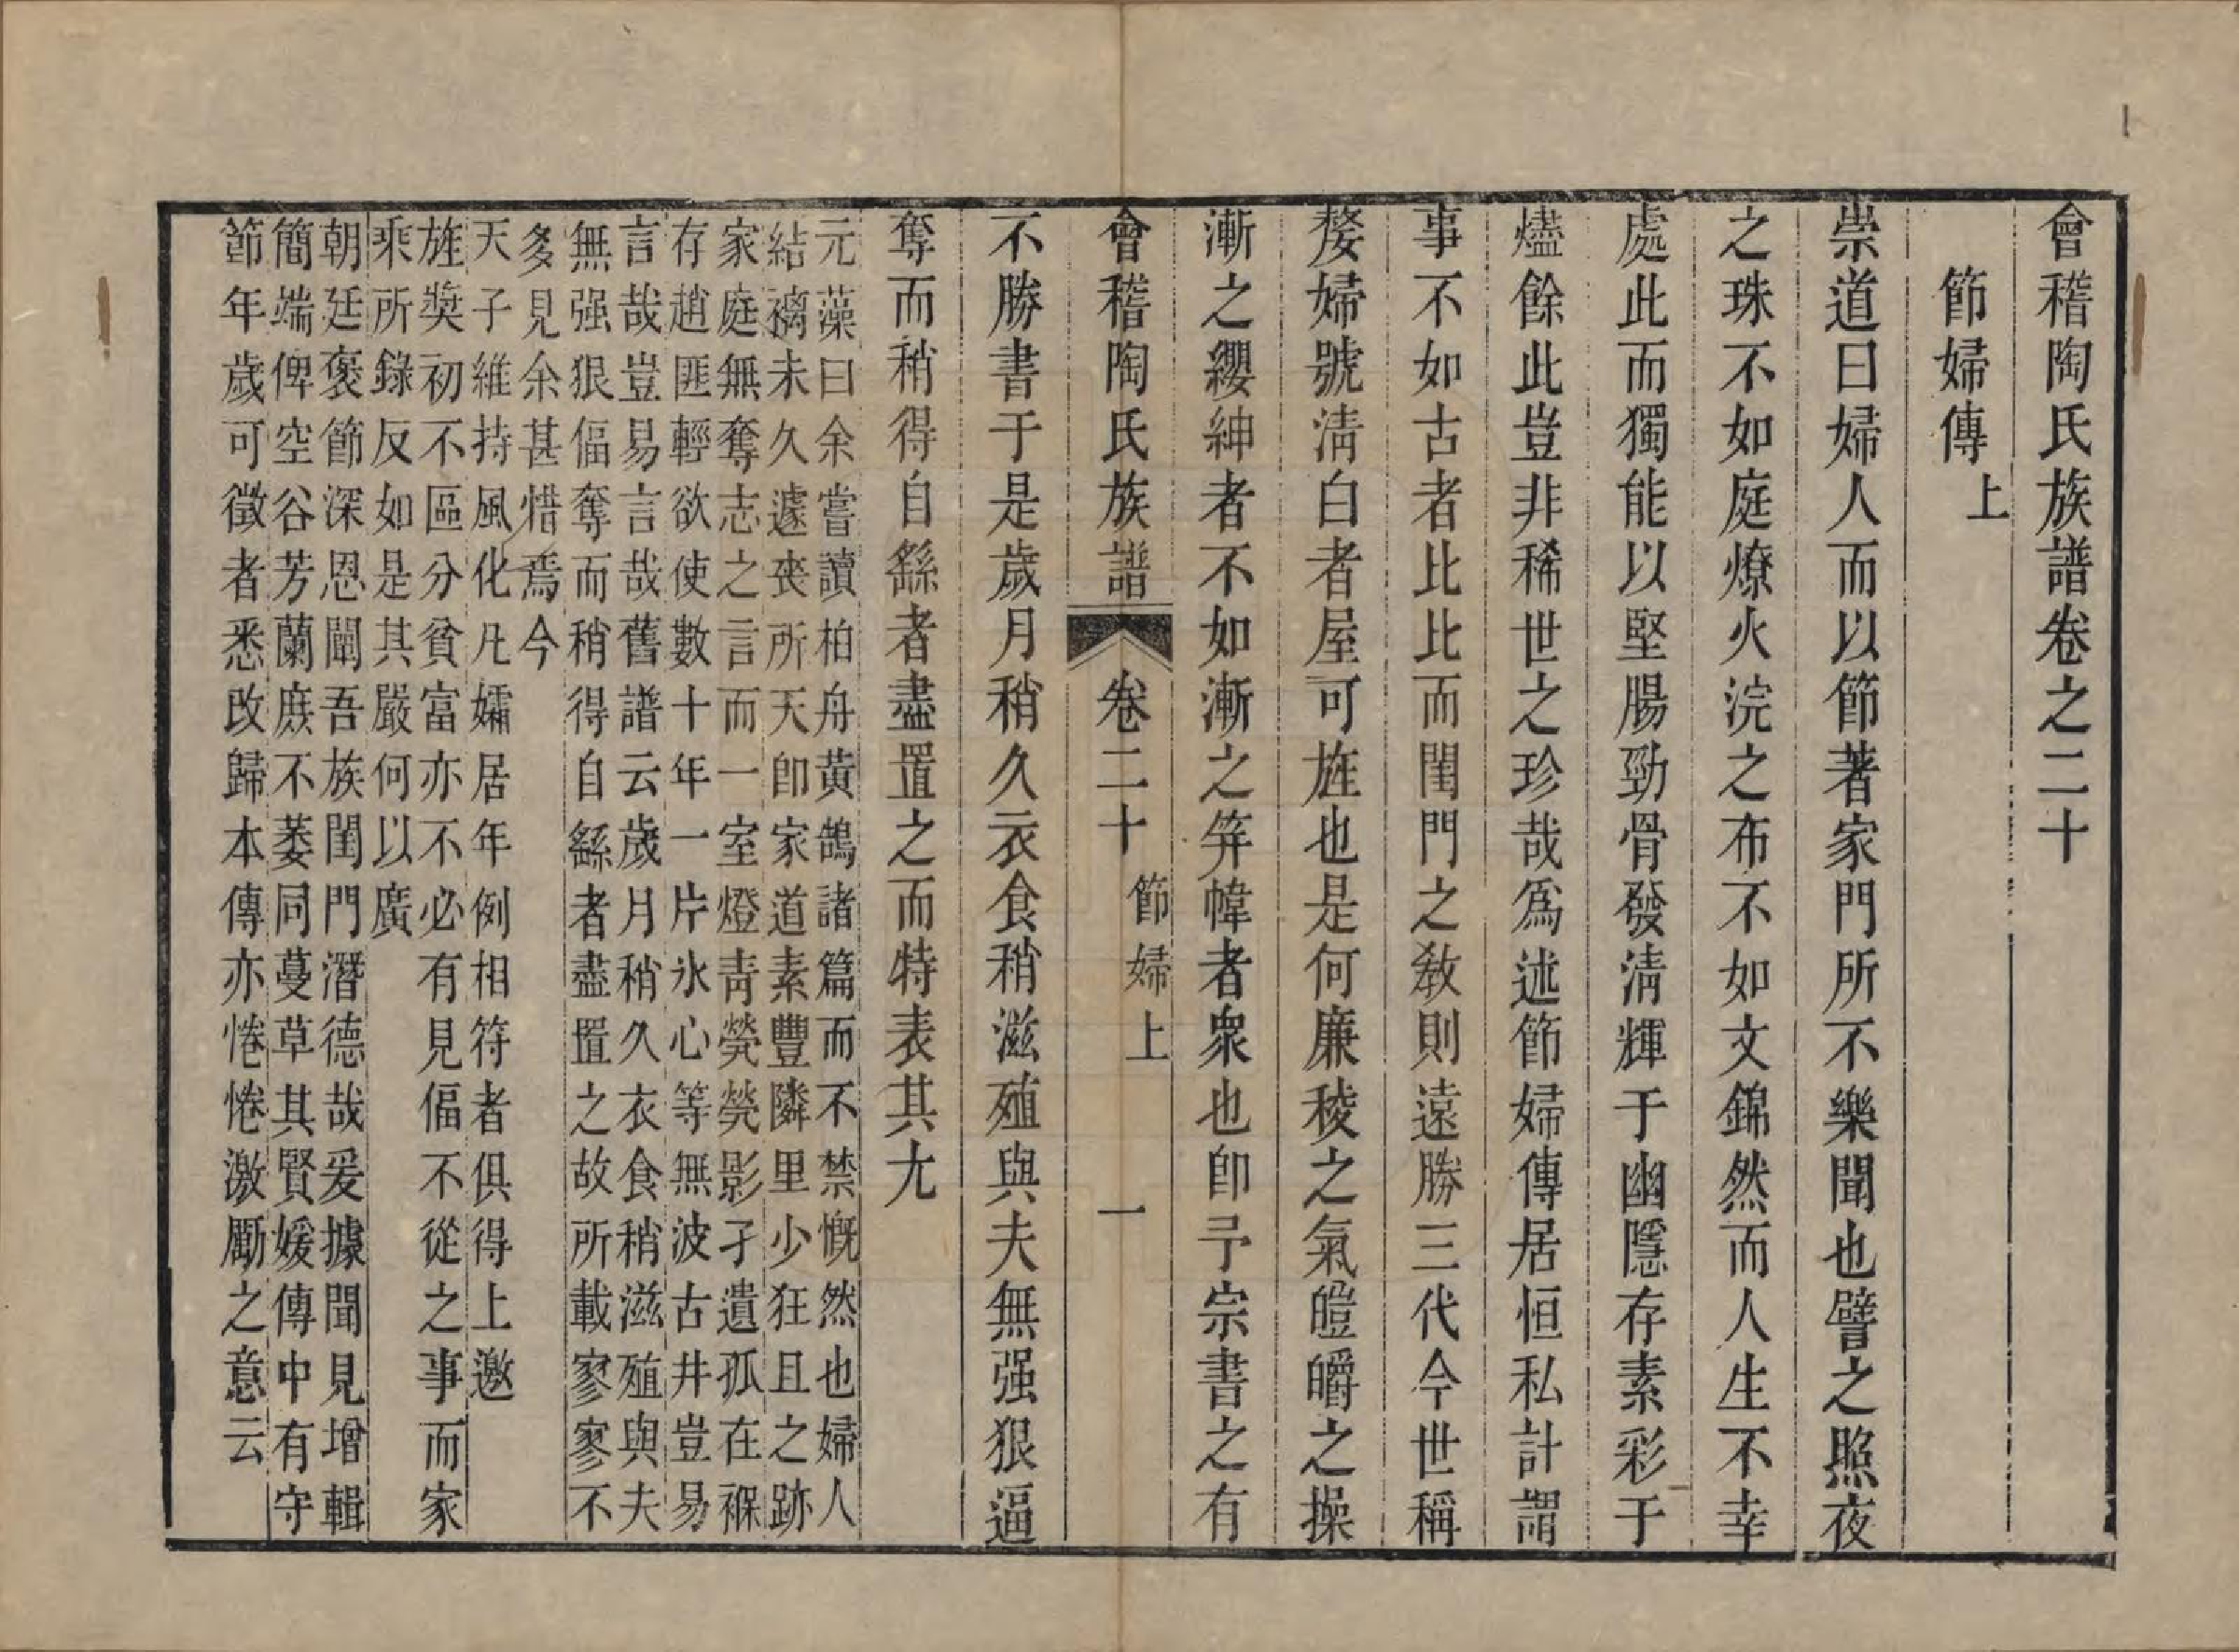 會稽陶氏族譜卷之二十
節婦傳上
崇道曰婦人而以節著家門所不樂聞也譬之照夜
之珠不如庭燎火浣之布不如文錦然而人生不幸
處此而獨能以堅腸勁骨發淸輝于幽隱存素彩于
燼餘此豈非稀世之珍哉爲述節婦傳居恒私計謂
事不如古者比比而閨門之敎則遠勝三代今世稱
嫠婦號淸白者屋可旌也是何廉稜之氣皚皭之操
漸之纓紳者不如漸之笄幃者衆也卽予宗書之有
會稽陶氏族譜 卷二十 節婦上 一
不勝書于是歲月稍久衣食稍滋殖與夫無强狠逼
奪而稍得自繇者盡置之而特表其尤
元藻曰余嘗讀柏舟黃鵠諸篇而不禁慨然也婦人
結褵未久遽喪所天卽家道素豐隣里少狂且之跡
家庭無奪志之言而一室燈靑煢煢影孑遺孤在褓
存趙匪輕欲使數十年一片氷心等無波古井豈易
言哉豈易言哉舊譜云歲月稍久衣食稍滋殖與夫
無强狠偪奪而稍得自繇者盡置之故所載寥寥不
多見余甚惜焉今
天子維持風化凡孀居年例相符者俱得上邀
旌奬初不區分貧富亦不必有見偪不從之事而家
乘所錄反如是其嚴何以廣
朝廷褒節深恩闡吾族閨門潛德哉爰據聞見增輯
簡端俾空谷芳蘭庶不萎同蔓草其賢媛傳中有守
節年歲可徵者悉改歸本傳亦惓惓激勵之意云